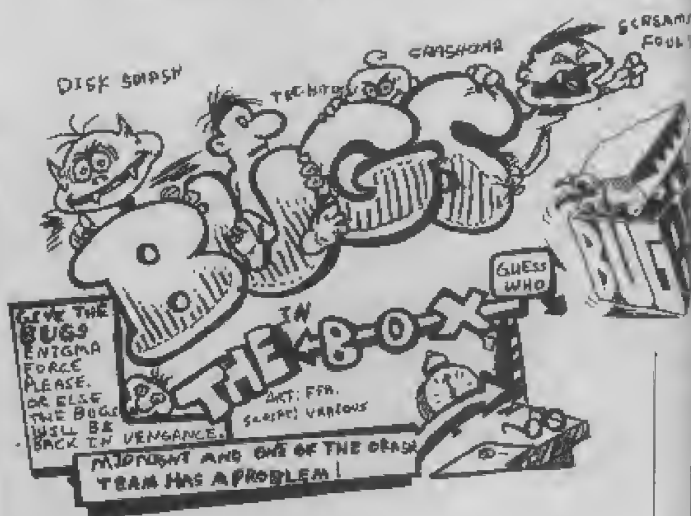 DISK SMASH
SCREAMS
FOUL
BUGS
IN
THE BOX
GUESS
WHO
GIVE THE
BUGS
ENIGMA
FORCE
PLEASE.
OR ELSE
THE BUGS
WILL BE
BACK IN VENGANCE.
ART:
SCRIPT: VARIOUS
MIDNIGHT AND ONE OF THE CRASH
TEAM HAS A PROBLEM!